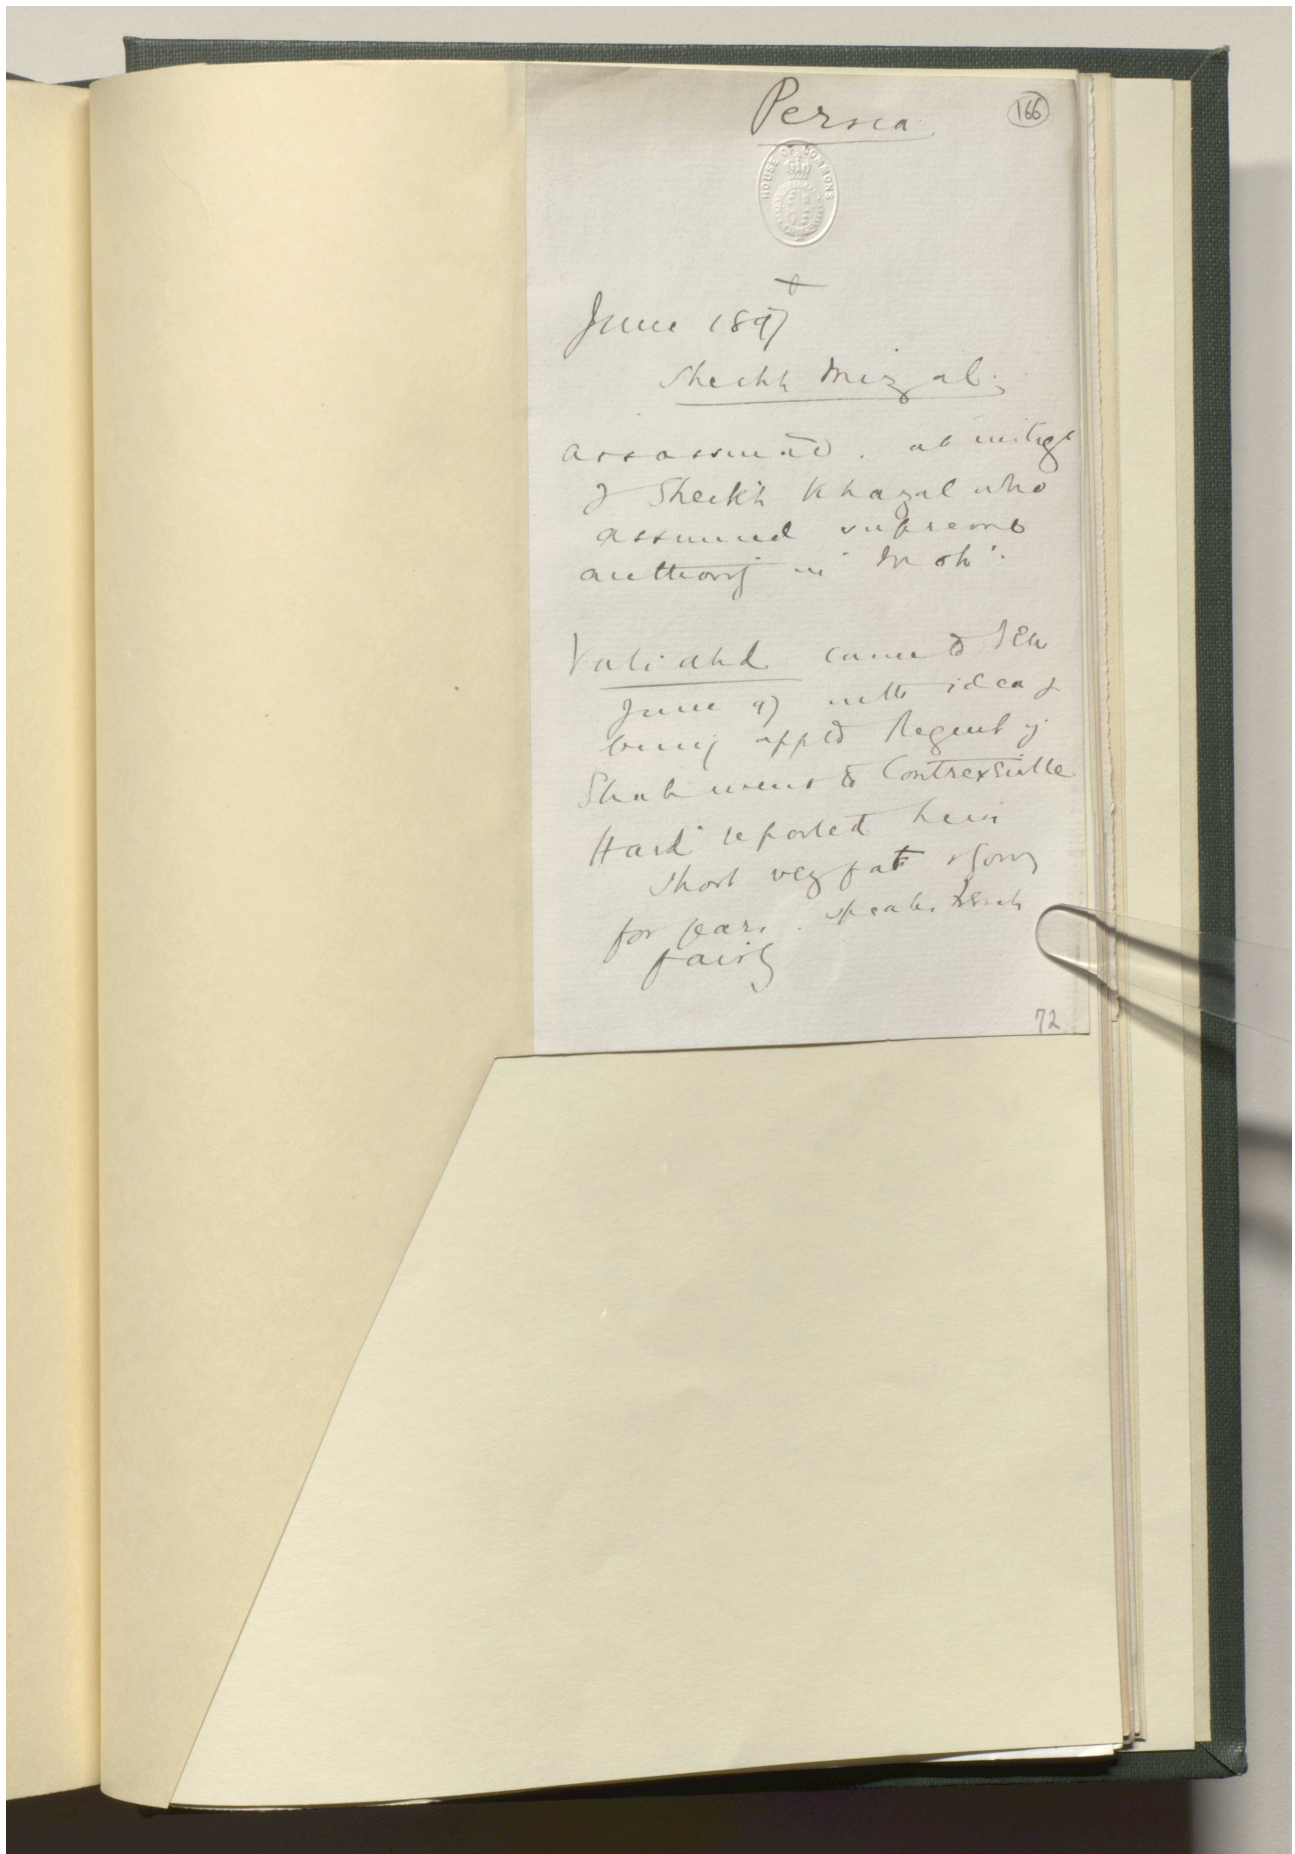 Persia
166
HOUSE OF COMMONS
June 1897
Sheikh Mizal.
assassinated. at instigt
of Sheikh Khazal who
assumed supreme
authority in Moh.
Vali ahd came to Teh
June 97 with idea of
being apptd Regent if
Shah went to Contrexeville
Hard reported him
short very fat &
for years. speaks French
fairly
72